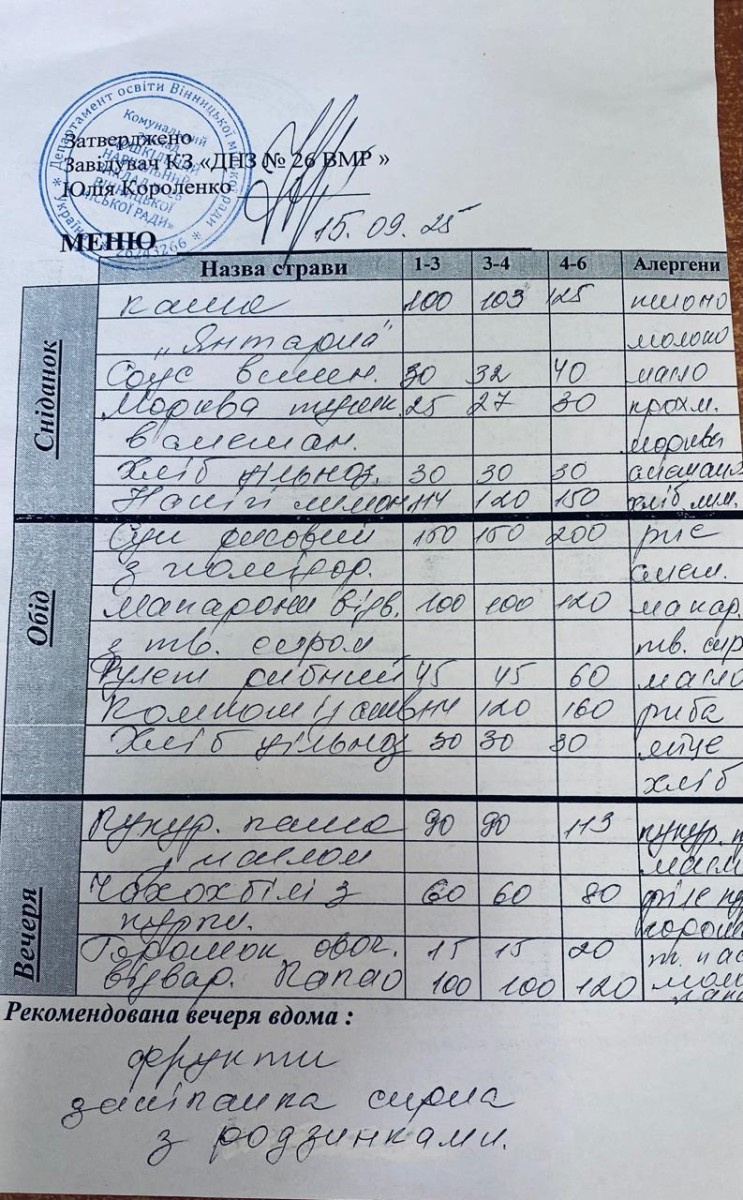 Департамент освіти Вінницької міської ради
Україна * 26243266 *
Комунальний
Затверджено
Завідувач КЗ «ДНЗ № 26 ВМР »
Юлія Короленко
15. 09. 25
МЕНЮ
Назва страви 1-3 3-4 4-6 Алергени
Сніданок
каша 100 103 125 пшоно
„Янтарна" молоко
Соус вишн. 30 32 40 масло
Морква тушк. 25 27 30 крохм.
в сметан. морква
Хліб цільноз. 30 30 30
Напій лимон 114 120 150 хліб лим.
Обід
Суп рисовий 150 150 200 рис
з помідор. смет.
Макарони відв. 100 100 120 макар.
з тв. сиром тв. сир
Рулет рибний 45 45 60 масло
Компот 114 120 160 риба
Хліб цільноз 30 30 30 яйце
хліб
Вечеря
Кукур. каша 90 90 113 кукур.
з маслом
Чахохбілі з 60 60 80 філе
курки.
Горошок овоч. 15 15 20
відвар. Какао 100 100 120
Рекомендована вечеря вдома :
фрукти
запіканка сирна
з родзинками.